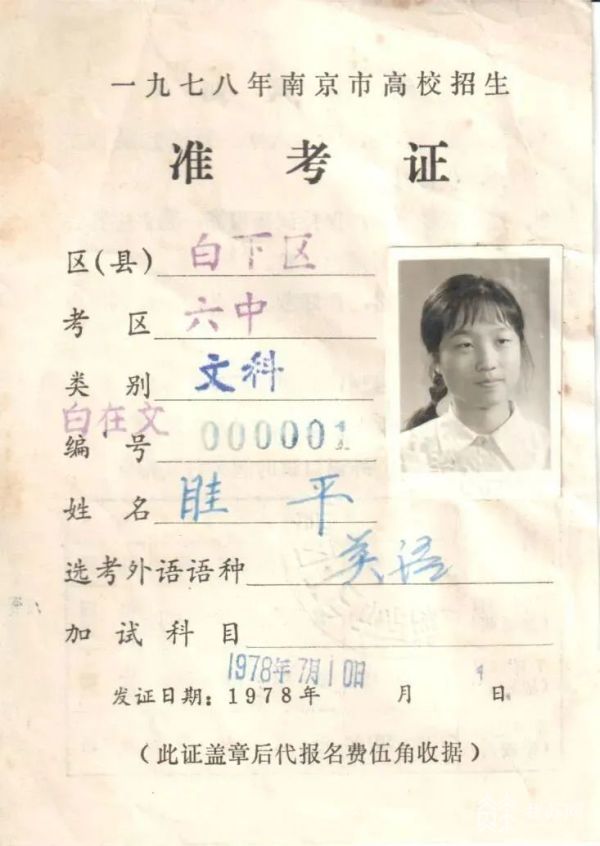 一九七八年南京市高校招生
准考证
区(县) 白下区
考区 六中
类别 文科
白在文
编号 000001
姓名 眭平
选考外语语种 英语
加试科目
1978年7月10日
发证日期：1978年 月 日
(此证盖章后代报名费伍角收据)